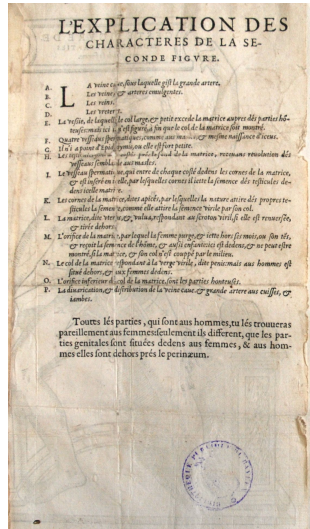 L'EXPLICATION DES
CHARACTERES DE LA SE-
CONDE FIGVRE.
A. LA veine caue, sous laquelle gist la grande artere.
B. Les veines, & arteres emulgentes.
C. Les reins.
D. Les vreteres.
E. La vessie, de laquelle le col large, & petit excede la matrice aupres dés parties hõ-
teuses: mais ici il n'est figuré, à fin que le col de la matrice soit montré.
F. Quatre vesseaus spermatiques, comme aus mâles, & mesme naissance d'iceus.
G. Il n'i a point d'Epididyme, ou elle est fort petite.
H. Les de la matrice, recevans révolution dés
vesseaus semblable aus masles.
I. Le vesseau spermatique, qui entre de chaque costé dedens les cornes de la matrice,
& est inseré en elle, par lesquelles cornes il iette la semence dés testicules de-
dens icelle matrice.
K. Les cornes de la matrice, dites apices, par lesquelles la nature attire dés propres te-
sticules la semence, comme elle attire la semence virile par son col.
L. La matrice, dite vterus, & vulua, respondant au scrotum viril, si elle est renuersée,
& tirée dehors.
M. L'orifice de la matrice, par lequel la femme purge, & iette hors ses mois, ou son tés,
& reçoit la semence de l'hõme, & aussi enfante: icy est dedens, & ne peut estre
montré, si la matrice, & son col n'est couppé par le milieu.
N. Le col de la matrice respondant à la verge virile, dite penis: mais aus hommes est
situé dehors, & aus femmes dedens.
O. L'orifice inferieur du col de la matrice, sont les parties honteuses.
P. La diuarication, & distribution de la veine caue, & grande artere aus cuisses, &
iambes.
Toutes lés parties, qui sont aus hommes, tu lés trouueras
pareillement aus femmes: seulement ils different, que les par-
ties genitales sont situées dedens aus femmes, & aus hom-
mes elles sont dehors prés le perinæum.